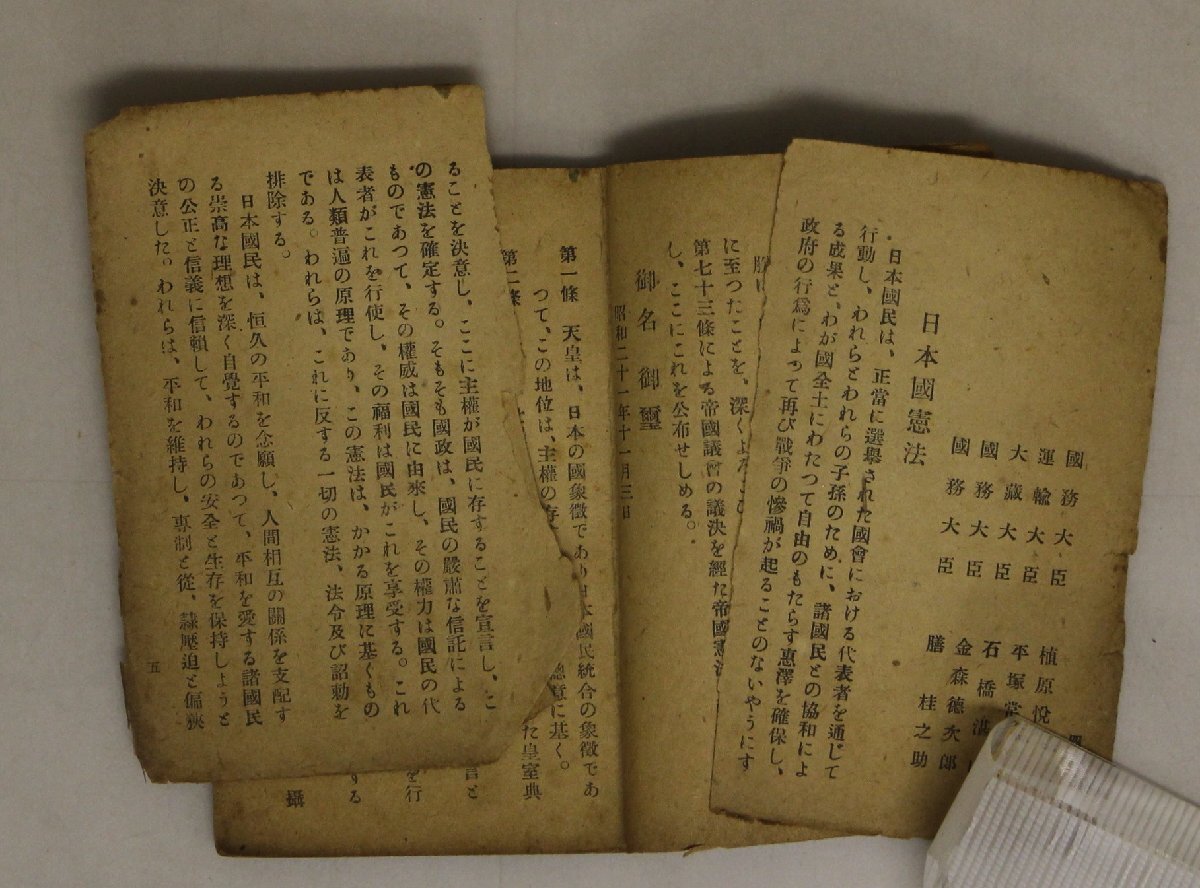 國務大臣 植原悅
運輸大臣 平塚常
大藏大臣 石橋湛
國務大臣 金森德次郎
國務大臣 膳桂之助
日本國憲法
日本國民は、正當に選擧された國會における代表者を通じて
行動し、われらとわれらの子孫のために、諸國民との協和によ
る成果と、わが國全土にわたつて自由のもたらす惠澤を確保し、
政府の行爲によつて再び戰爭の慘禍が起ることのないやうにす
に至つたことを、深くよろこ
第七十三條による帝國議會の議決を經た帝國憲法
し、ここにこれを公布せしめる。
御名御璽
昭和二十一年十一月三日
第一條 天皇は、日本の國象徵であり日本國民統合の象徵であ
つて、この地位は、主權の存 總意に基く。
第二條 た皇室典
ることを決意し、ここに主權が國民に存することを宣言し、こ
の憲法を確定する。そもそも國政は、國民の嚴肅な信託による
ものであつて、その權威は國民に由來し、その權力は國民の代
表者がこれを行使し、その福利は國民がこれを享受する。これ
は人類普遍の原理であり、この憲法は、かかる原理に基くもの
である。われらは、これに反する一切の憲法、法令及び詔勅を
排除する。
日本國民は、恒久の平和を念願し、人間相互の關係を支配す
る崇高な理想を深く自覺するのであつて、平和を愛する諸國民
の公正と信義に信賴して、われらの安全と生存を保持しようと
決意した。われらは、平和を維持し、專制と從、隷壓迫と偏狹
五
言と
を行
する
攝